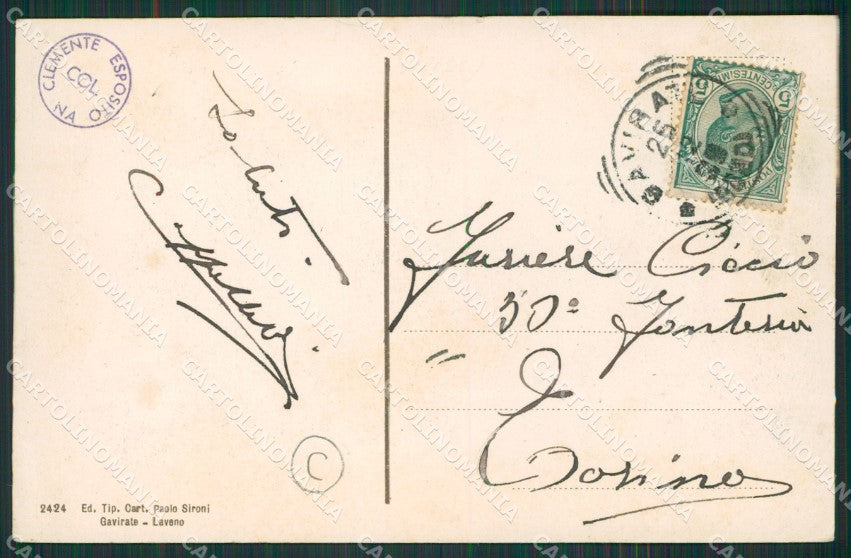 CLEMENTE ESPOSITO
COL.
NA
Saluti
GAVIRATE
25
CENTESIMI 5
Furiere Ciccio
50º Fanteria
" Torino
C
2424 Ed. Tip. Cart. Paolo Sironi
Gavirate - Laveno
CARTOLINOMANIA